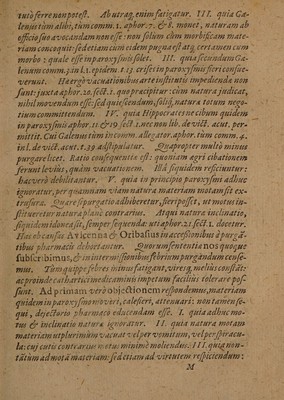 tutò ferre nonpotest. Ab utrag. enim fatigatur. III. quia Ga-
lenus tum alibi, tum comm. 1. aphor. 7. & 8. monet, naturam ab
officio suo avocandam non esse: non solum cùm morbificam mate-
riam concoquit: sed etiam cum eidem pugna est atq. certamen cum
morbo: quale esse in paroxysmis solet. III. quia secundum Ga-
lenum comm. in l. 1. epidem. t. 15. crises in paroxysmis fieri consue-
verunt. Hæ ergò vacuationibus arte institutis impediendæ non
sunt: juxta aphor. 20. sect. 1. quo præcipitur: cùm natura judicat,
nihil movendum esse: sed quiescendum: solig. natura totum nego-
tium committendum. IV. quia Hippocrates ne cibum quidem
in paroxysmis aphor. 11. & 19. sect. 1. nec non lib. de vict. acut. per-
mittit. Cui Galenus tum in comm. allegator. aphor. tum comm. 4.
in l. de vict. acut. t. 39 adstipulatur. Quapropter multò minus
purgare licet. Ratio consequentiæ est: quoniam agri cibationem
ferunt levius, quàm vacuationem. Illa siquidem reficiuntur:
hac verò debilitantur. V. quia in principio paroxysmi adhuc
ignoratur, per quamnam viam natura materiam motam sit ex-
trusura. Quare si purgatio adhiberetur, fieri posset, ut motus in-
stitueretur natura planè contrarius. Atqui natura inclinatio,
siquidem idonea sit, semper sequenda: ut aphor. 21. sect. 1. docetur.
Hæc ob causas Avicenna & Oribasius in accessionibus à purgā-
tibus pharmacis dehortantur. Quorum sententiæ nos quoque
subscribimus, & in intermissionibus febrium purgandum cense-
mus. Tum quippe febres minus fatigant, viresq. meliùs constāt:
ac proinde cathartici medicaminis impetum facilius tolerare pos-
sunt. Ad primam verò objectionem respondemus, materiam
quidem in paroxysmo moveri, calefieri, attenuari: non tamen se-
qui, dejectorio pharmaco educendam esse. I. quia adhuc mo-
tus & inclinatio naturæ ignoratur. II. quia natura motam
materiam utplurimùm vacuat vel per vomitum, vel per respiracu-
la: cui cutis contrarius motus minimè moliendus. III. quia non-
tātùm ad motā materiam: sed etiam ad virtutem respiciendum:
M